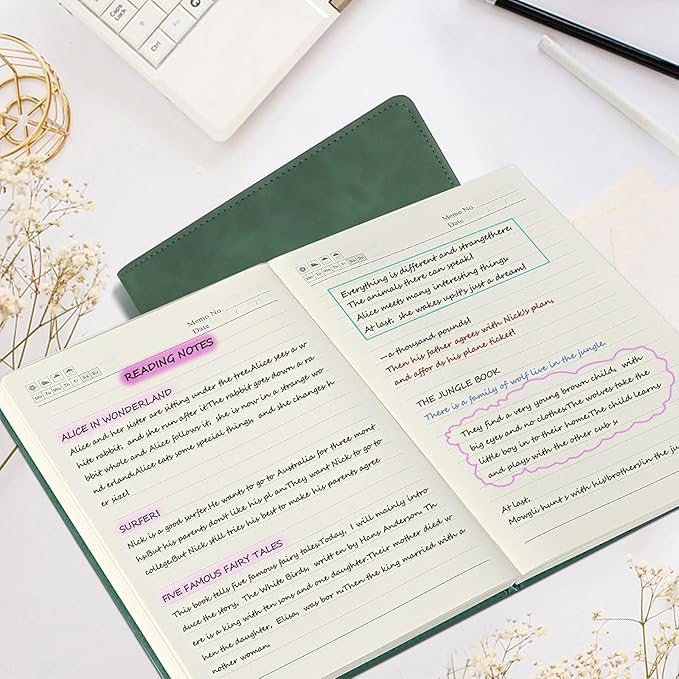 Caps Lock
Ctrl
Memo No.
Date
Mo Tu We Th Fr Sa Su
READING NOTES
ALICE IN WONDERLAND
Alice and her sister are sitting under the tree.Alice sees a w
hite rabbit, and she run after it.The rabbit goes down a ra
bbit whole and Alice follows it, she is now in a strange wor
nd erland.Alice eats some special things, and she changes h
er size!
SURFER!
Nick is a good surfer.He wants to go to Australia for three mont
hs.But his parents don't like his pl an.They want Nick to go to
college.But Nick still tries his best to make his parents agree
FIVE FAMOUS FAIRY TALES
This book tells five famous fairy tales.Today, I will mainly intro
duce the story, The White Birds, writt en by Hans Anderson. Th
ere is a king with ten sons and one daughter.Their mother died w
hen the daughter, Elisa, was bor n.Then the king married with a
nother woman.
Memo No.
Date / /
Mo Tu We Th Fr Sa Su
Everything is different and strangethere.
The animals there can speak!
Alice meets many interesting things.
At last, she wakes up.It's just a dream!
—a thousand pounds!
Then his father agrees with Nick's plan,
and affor ds his plane ticket!
THE JUNGLE BOOK
There is a family of wolf live in the jungle.
They find a very young brown child, with
big eyes and no clothes.The wolves take the
little boy in to their home.The child learns
and plays with the other cub s.
At last,
Mowgli hunt s with his!brothers!in the ju